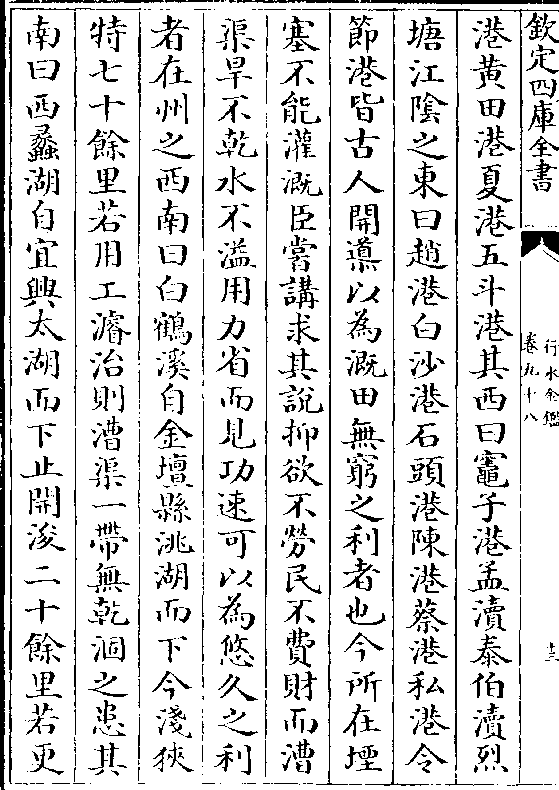 欽定四庫全書
行水金鑑
卷九十八
十三
港黄田港夏港五斗港其西曰竈子港孟瀆泰伯瀆烈
塘江陰之東曰趙港白沙港石頭港陳港蔡港私港令
節港皆古人開導以為溉田無窮之利者也今所在堙
塞不能灌溉臣嘗講求其說抑欲不勞民不費財而漕
渠旱不乾水不溢用力省而見功速可以為悠久之利
者在州之西南曰白鶴溪自金壇縣洮湖而下今淺狹
特七十餘里若用工濬治則漕渠一帶無乾涸之患其
南曰西蠡湖自宜興太湖而下止開浚二十餘里若更